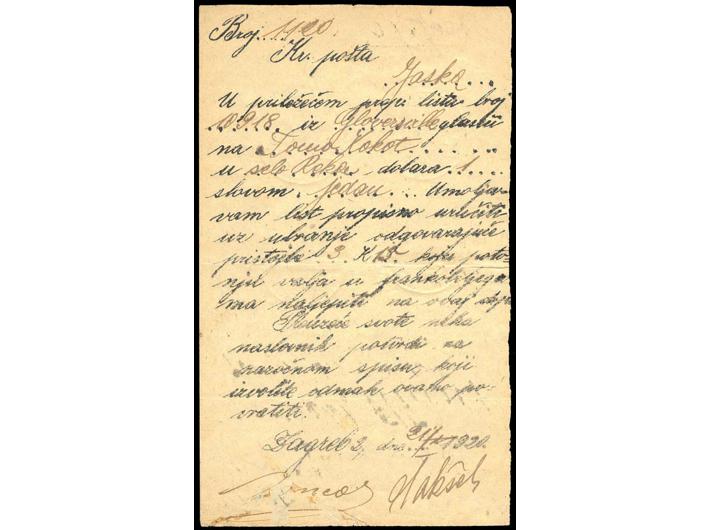 Broj. 1120.
Kr. pošta
Jaska
U priležećem prepr. listu broj
10918. iz Gloversville glaseći
na Tomo Kokot
u selo Reka dolara 1.
slovom jedan. Umoljava
vam list propisno uručiti
uz ubranje odgovarajuće
pristojbe 3 K 15. koju poto-
nju valja u frankobiljega
ma naljepiti na ovaj
svote neka
naslovnik potvrdi na
zaročnom spisu, koji
izvolite odmah ovamo po
vratiti.
Zagreb 2, dne 21/ 1920.